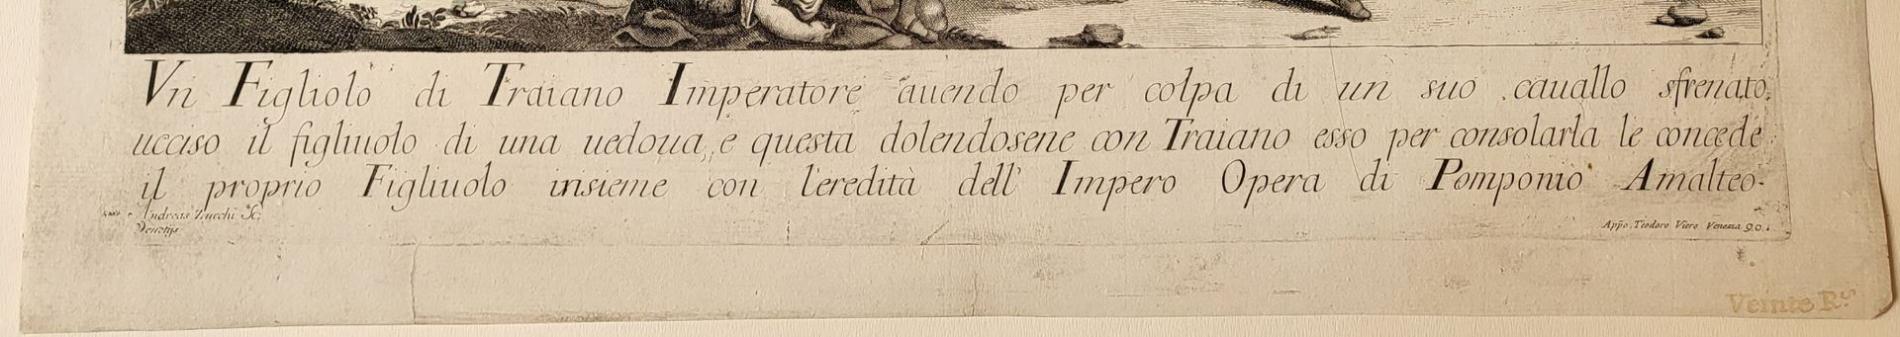 Vn Figliolo di Traiano Imperatore auendo per colpa di un suo cauallo sfrenato,
ucciso il figliuolo di una uedoua, e questa dolendosene con Traiano esso per consolarla le concede
il proprio Figliuolo insieme con l'eredità dell' Impero Opera di Pomponio Amalteo.
Andreas Zucchi Sc:
Venetijs
Appo. Teodoro Viero Venezia 90.
Veinte R.s